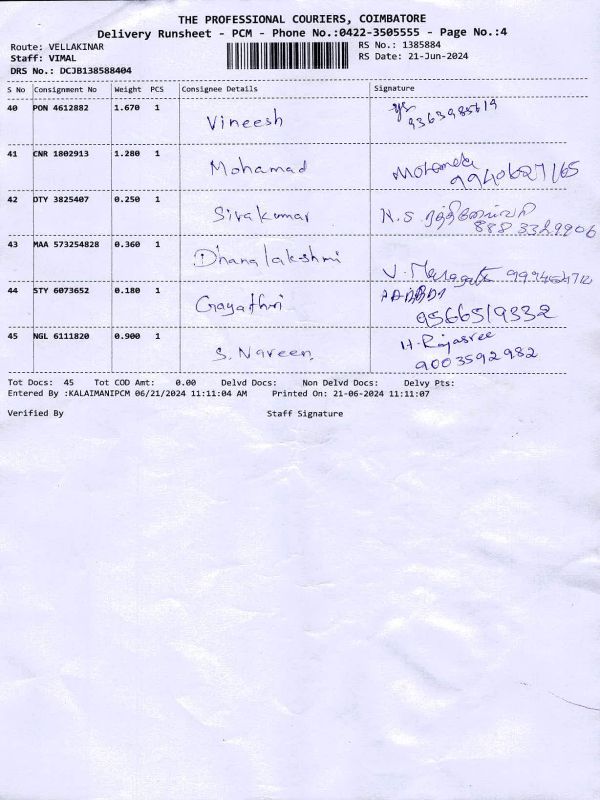 THE PROFESSIONAL COURIERS, COIMBATORE
Delivery Runsheet - PCM - Phone No.:0422-3505555 - Page No.:4
Route: VELLAKINAR RS No.: 1385884
Staff: VIMAL RS Date: 21-Jun-2024
DRS No.: DCJB138588404
S No Consignment No Weight PCS Consignee Details Signature
40 PON 4612882 1.670 1 Vineesh
9363985619
41 CNR 1802913 1.280 1 Mohamad
9940627165
42 DTY 3825407 0.250 1 Sivakumar N.S.
888 3329906
43 MAA 573254828 0.360 1 Dhanalakshmi
V.
44 STY 6073652 0.180 1 Gayathri
9566519332
45 NGL 6111820 0.900 1 S. Naveen. H-Rajasree
9003592982
Tot Docs: 45 Tot COD Amt: 0.00 Delvd Docs: Non Delvd Docs: Delvy Pts:
Entered By :KALAIMANIPCM 06/21/2024 11:11:04 AM Printed On: 21-06-2024 11:11:07
Verified By Staff Signature